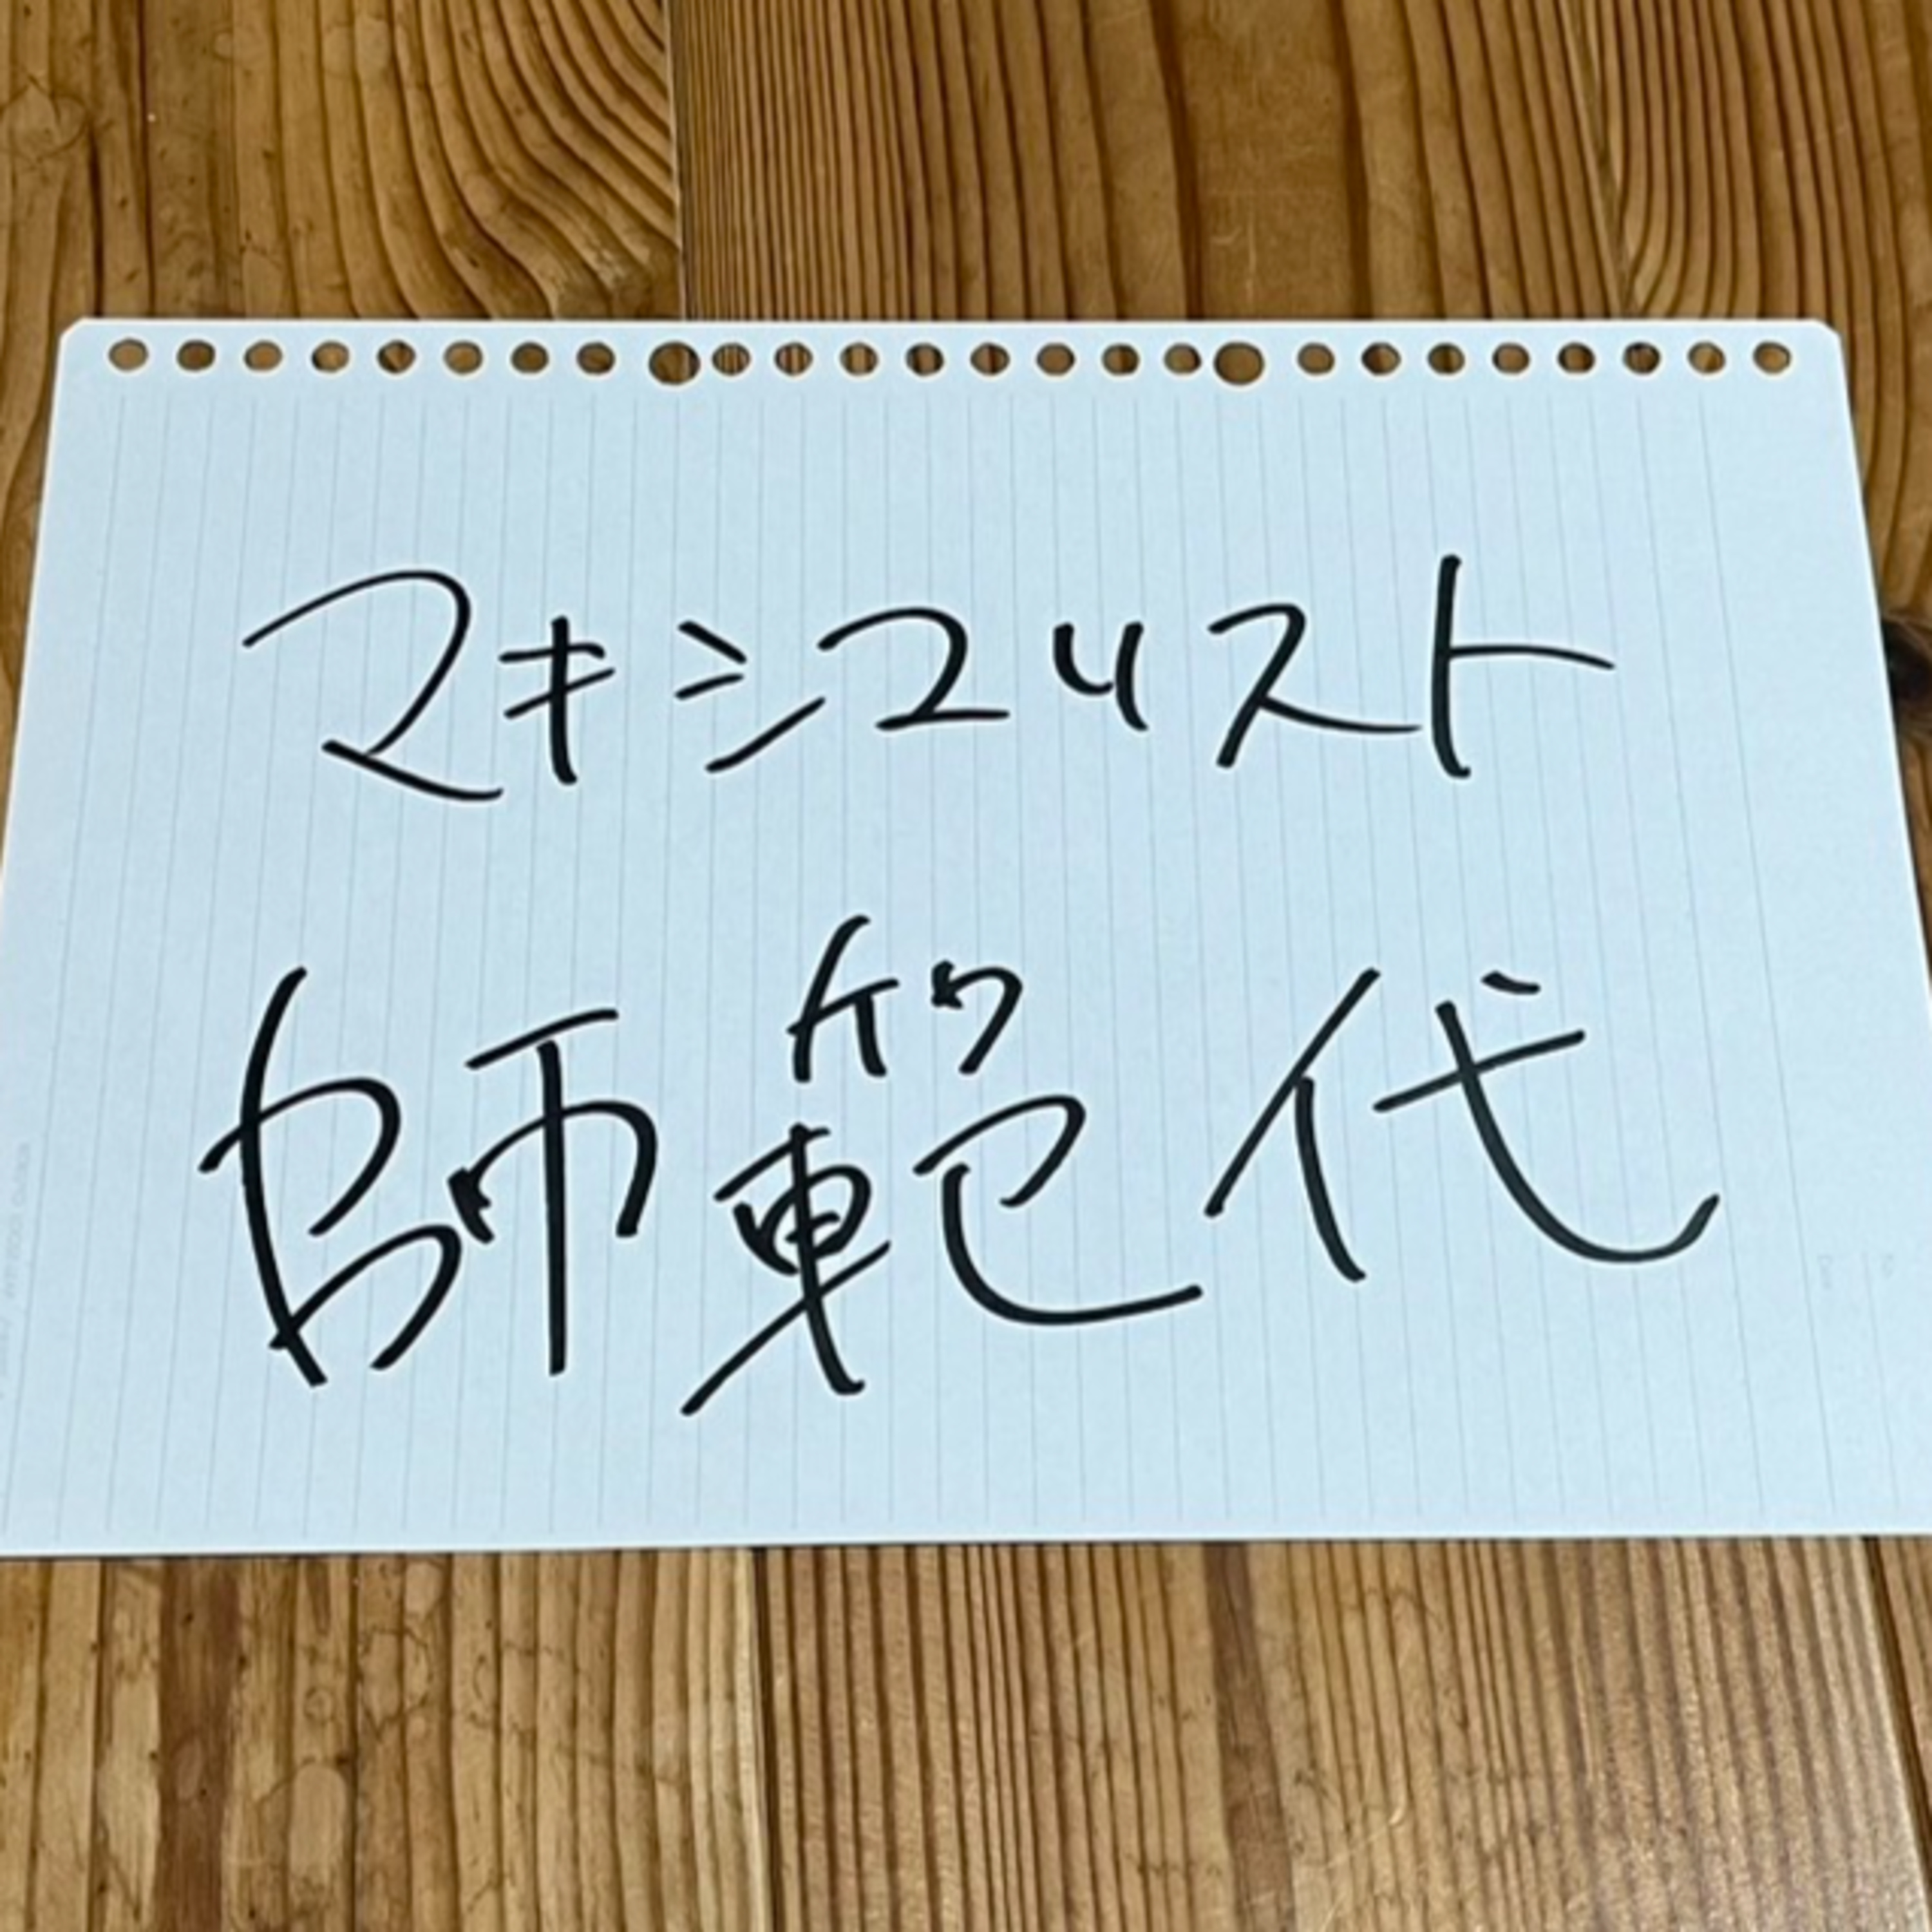 マキシマリスト
師範代